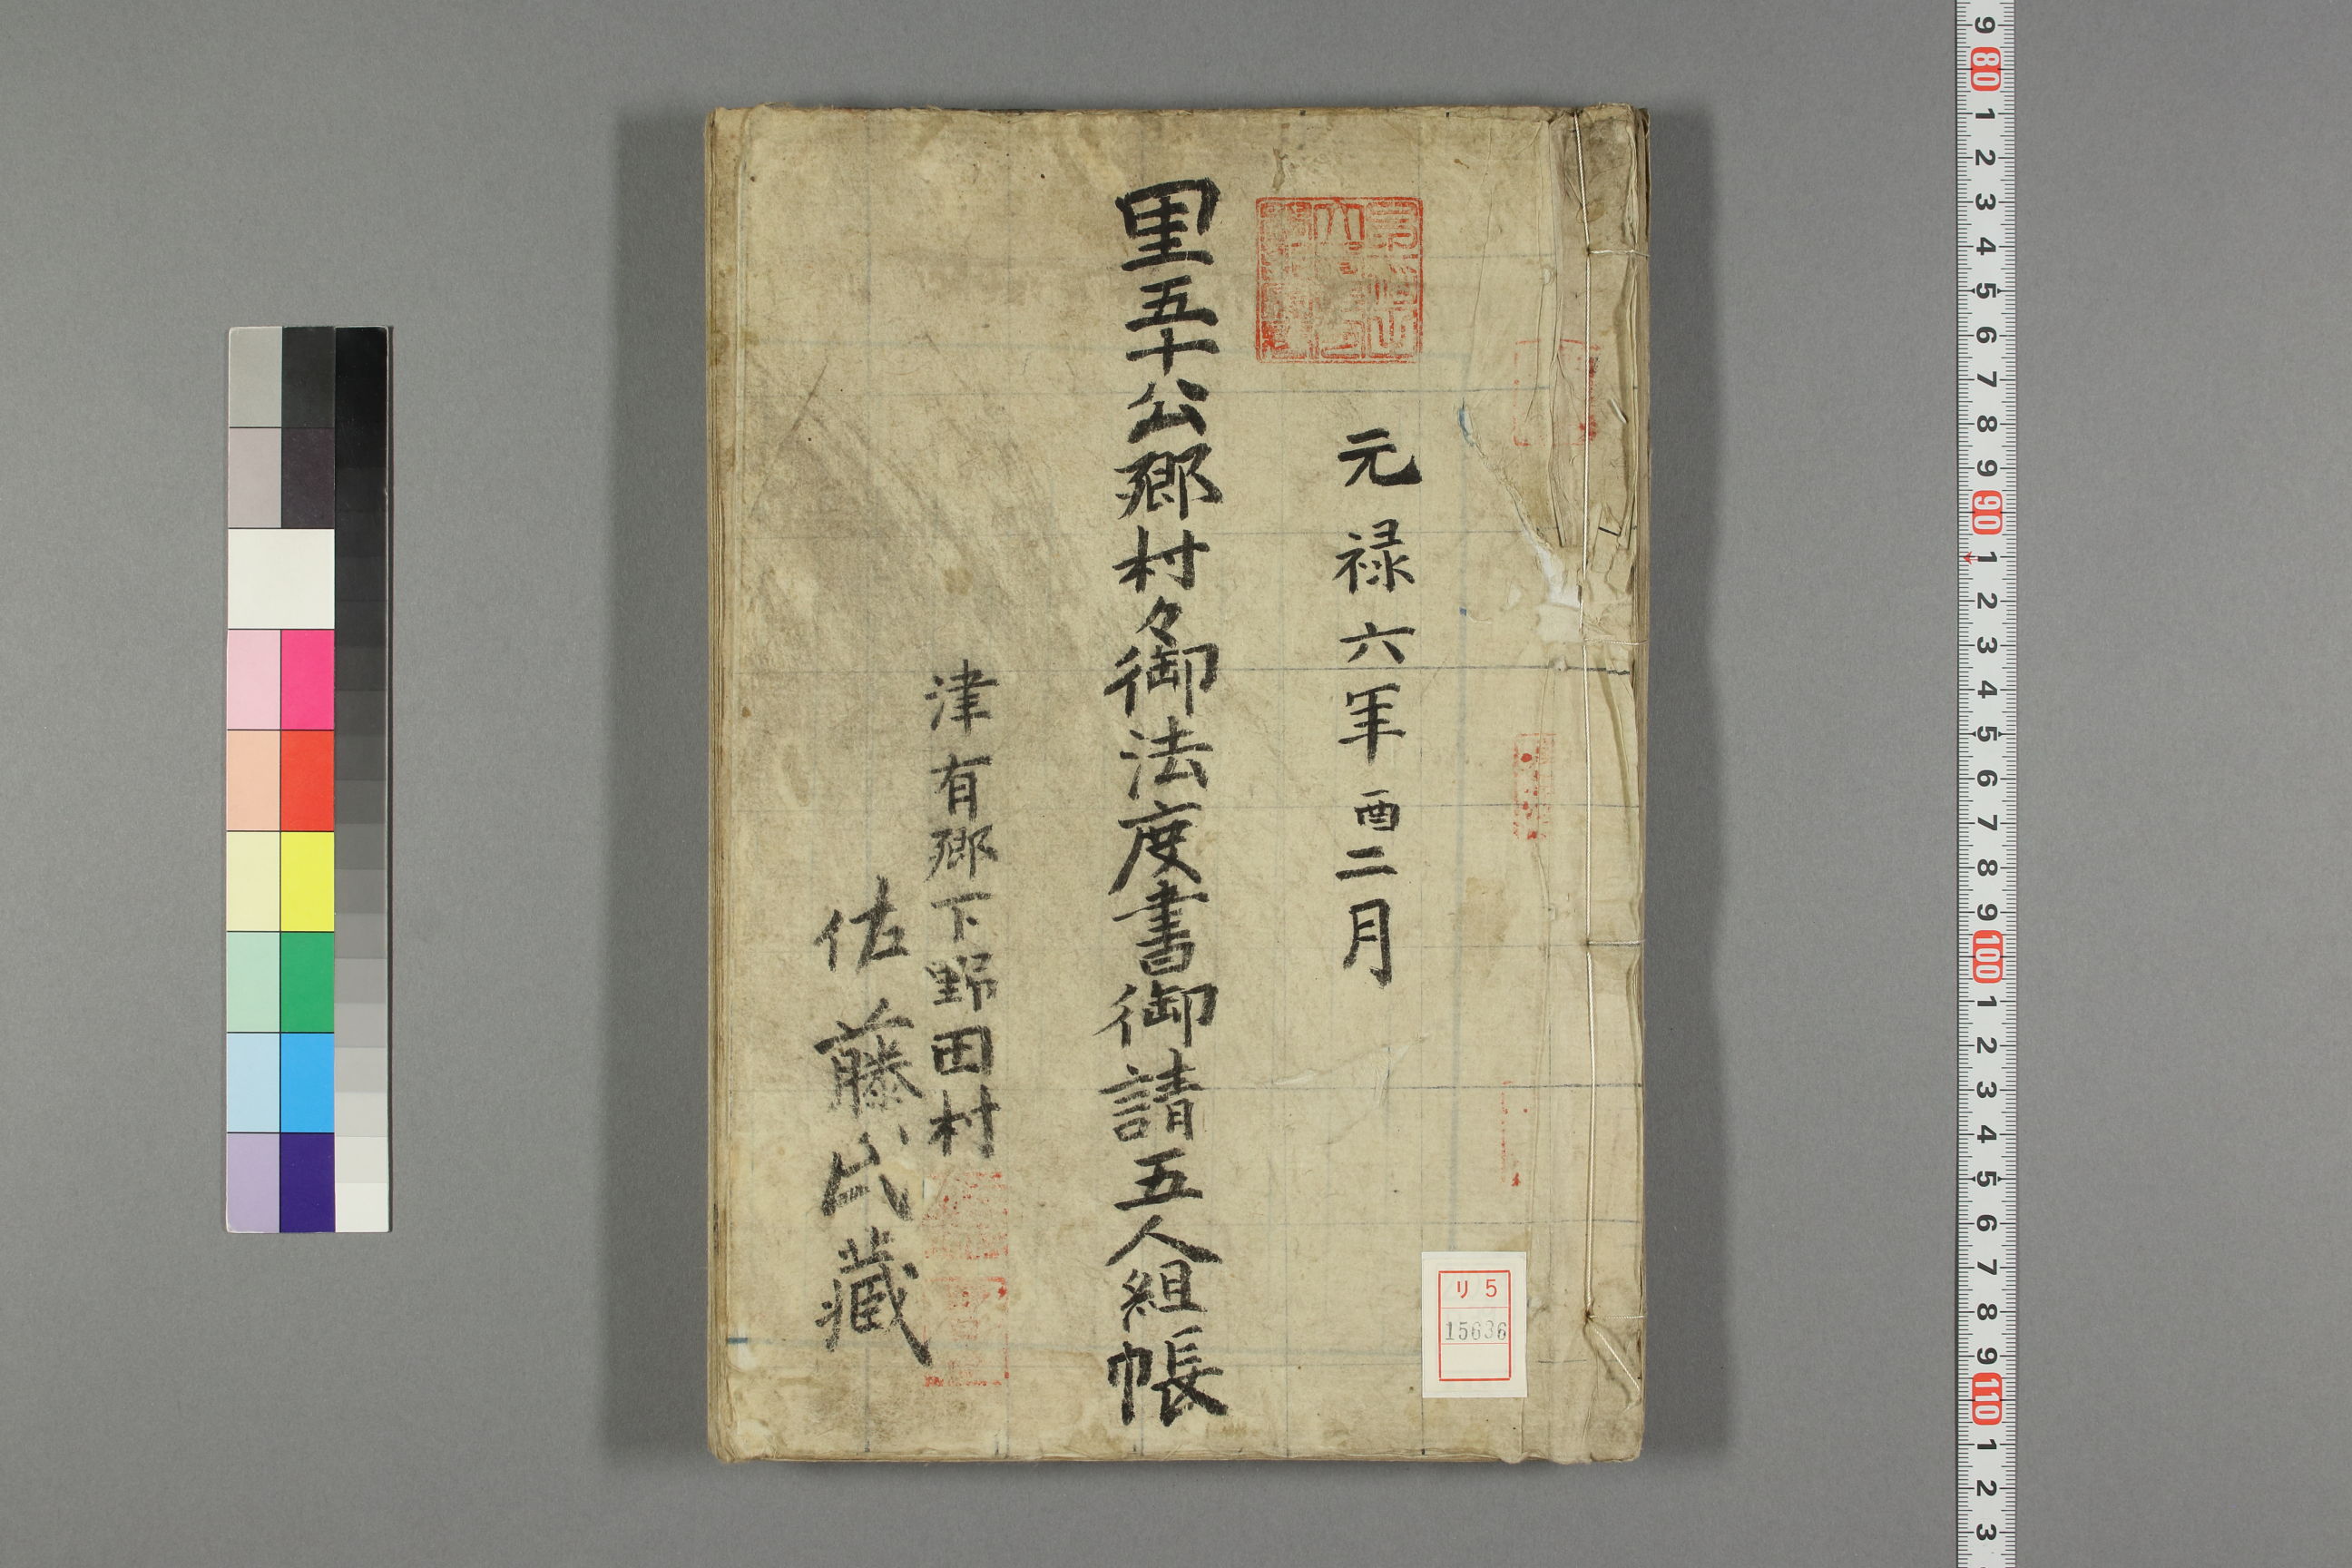 元禄六年酉二月
里五十公郷村々御法度書御請五人組帳
津有郷下野田村
佐藤氏蔵
リ 5
15636
9
80
1
2
3
4
5
6
7
8
9
90
1
2
3
4
5
6
7
8
9
100
1
2
3
4
5
6
7
8
9
110
1
2
3